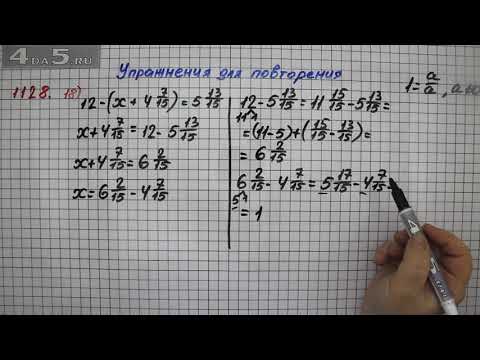 4DA5.RU
Упражнения для повторения
1128. 18)
12-(x+4 7/15)=5 13/15
x+4 7/15=12-5 13/15
x+4 7/15=6 2/15
x=6 2/15-4 7/15
12-5 13/15=11 15/15-5 13/15=
11 1
=(11-5)+(15/15-13/15)=
=6 2/15
6 2/15-4 7/15=5 17/15-4 7/15
5 1
=1
1=a/a, a